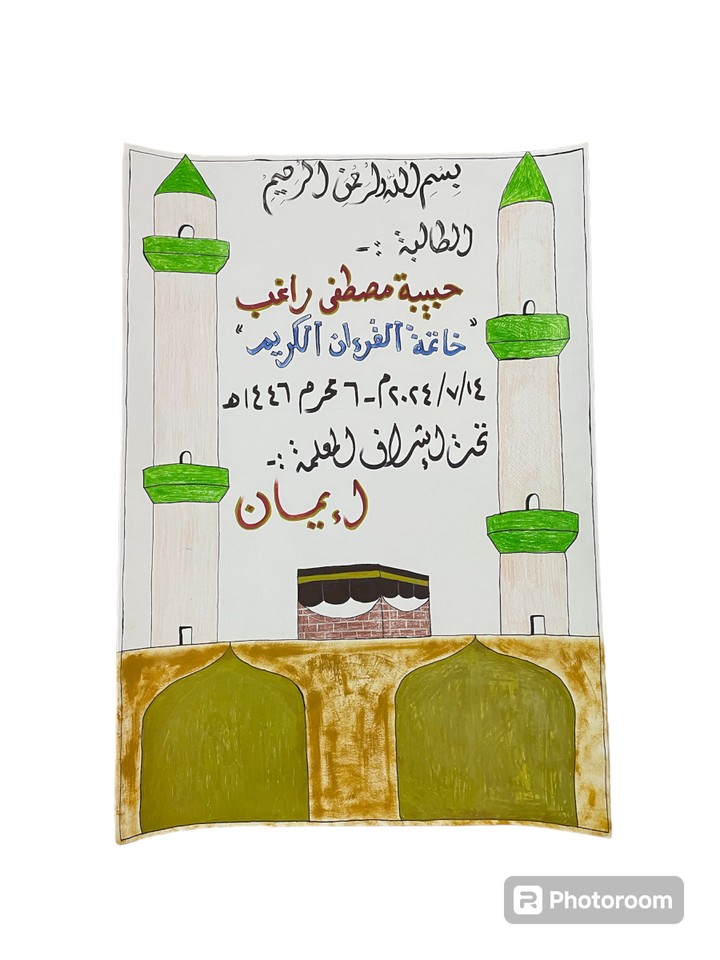 بسم الله الرحمن الرحيم
الطالبة :-
حبيبة مصطفى راغب
"خاتمة القرءان الكريم"
٢٠٢٤/٧/١٤م - ٦ محرم ١٤٤٦ه
تحت إشراف المعلمة :-
إيمان
Photoroom